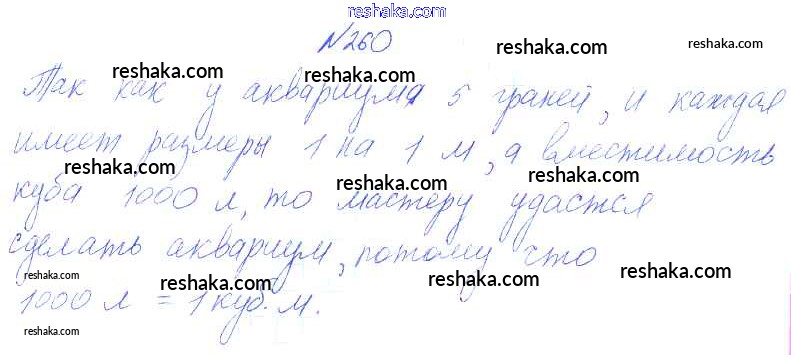 reshaka.com
№260
reshaka.com reshaka.com reshaka.com reshaka.com
Так как у аквариума 5 граней, и каждая
reshaka.com reshaka.com
имеет размеры 1 на 1 м, а вместимость
reshaka.com reshaka.com reshaka.com
куба 1000 л, то мастеру удастся
reshaka.com reshaka.com
сделать аквариум, потому что
reshaka.com reshaka.com reshaka.com reshaka.com
1000 л = 1 куб. м.
reshaka.com